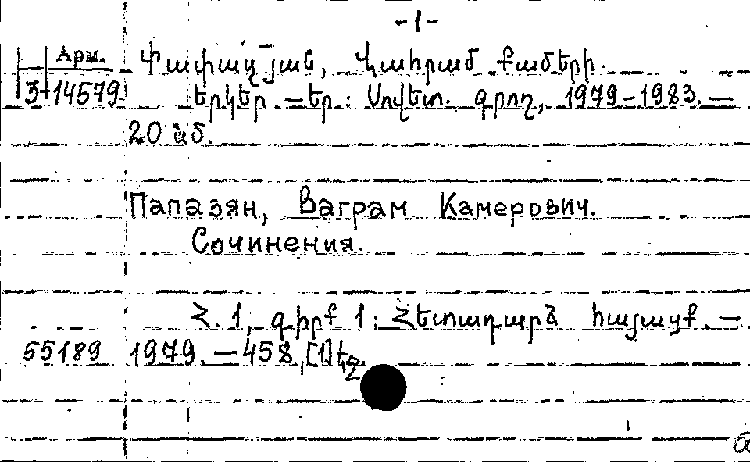 -1-
Арм. Փափազյան, Վահրամ Քամերի.
3-14579 Երկեր. — Եր.: Սովետ. գրող, 1979-1983. —
20 սմ.
Папазян, Ваграм Камерович.
Сочинения.
Հ. 1, գիրք 1: Հետադարձ հայացք. —
55189 1979. — 458, [1] էջ.